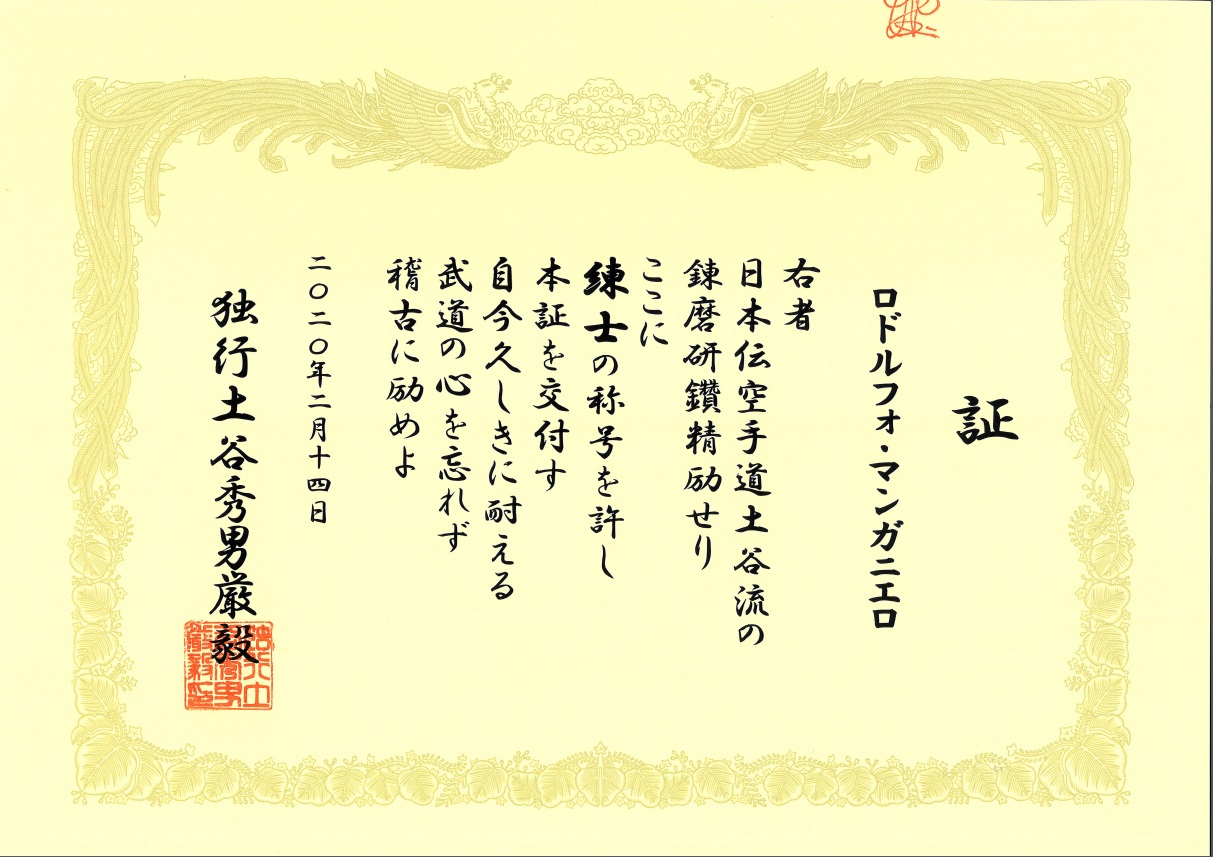 証
ロドルフォ・マンガニエロ
右者
日本伝空手道土谷流の
錬磨研鑽精励せり
ここに
練士の称号を許し
本証を交付す
自今久しきに耐える
武道の心を忘れず
稽古に励めよ
二〇二〇年二月十四日
独行土谷秀男厳毅
独行土
谷秀男
厳毅印